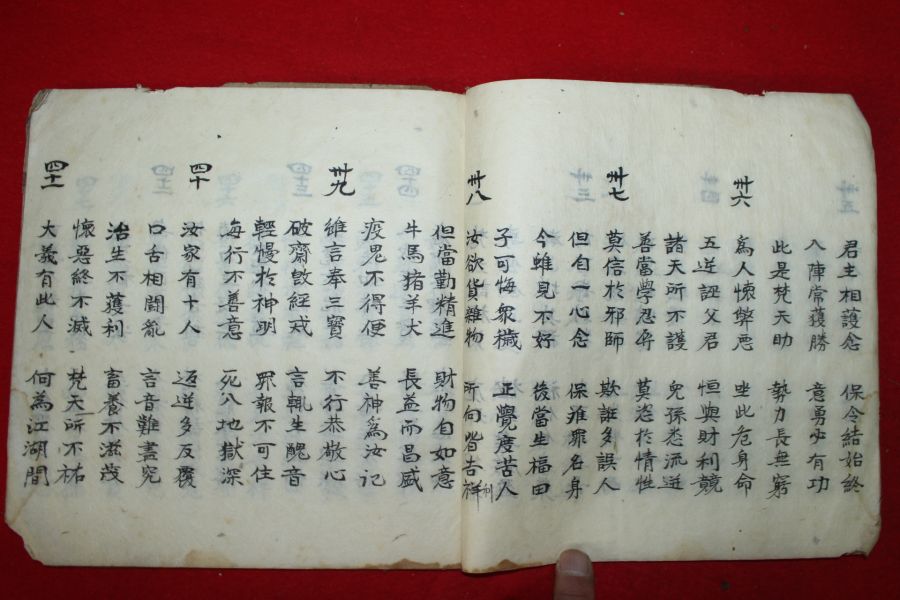 君主相護念 保令結始終
入陣常獲勝 意勇必有功
此是梵天助 勢力長無窮
卅六
為人懷弊惡 坐此危身命
五逆誣父君 恒與財利競
諸天所不護 兒孫悉流迸
善當學忍辱 莫恣於情性
卅七
莫信於邪師 欺誑多誤人
但自一心念 保罪名身
今雖見不好 後當生福田
子可悔眾穢 正覺度苦人
卅八
汝欲貨雜物 所向皆吉祥利
但當勤精進 財物自如意
牛馬猪羊犬 長益而昌盛
疫鬼不得便 善神為汝記
卅九
雖言奉三寶 不行恭敬心
破齋毀經戒 言輒生醜音
輕慢於神明 罪報不可住
海行不善意 死入地獄深
四十
汝家有十人 逆多反覆
口舌相鬪亂 言音難盡究
治生不獲利 畜養不滋茂
懷惡終不滅 梵天所不祐
四十一
大義有此人 何為江湖間